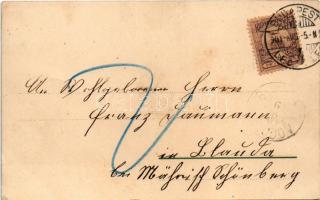 BUDAPEST
An Wohlgeboren Herrn
Franz Haumann
in Blauda
bei Mährisch Schönberg